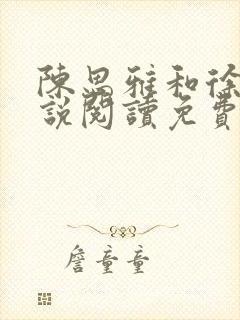 陳思雅和徐
說閱讀免費
詹童童